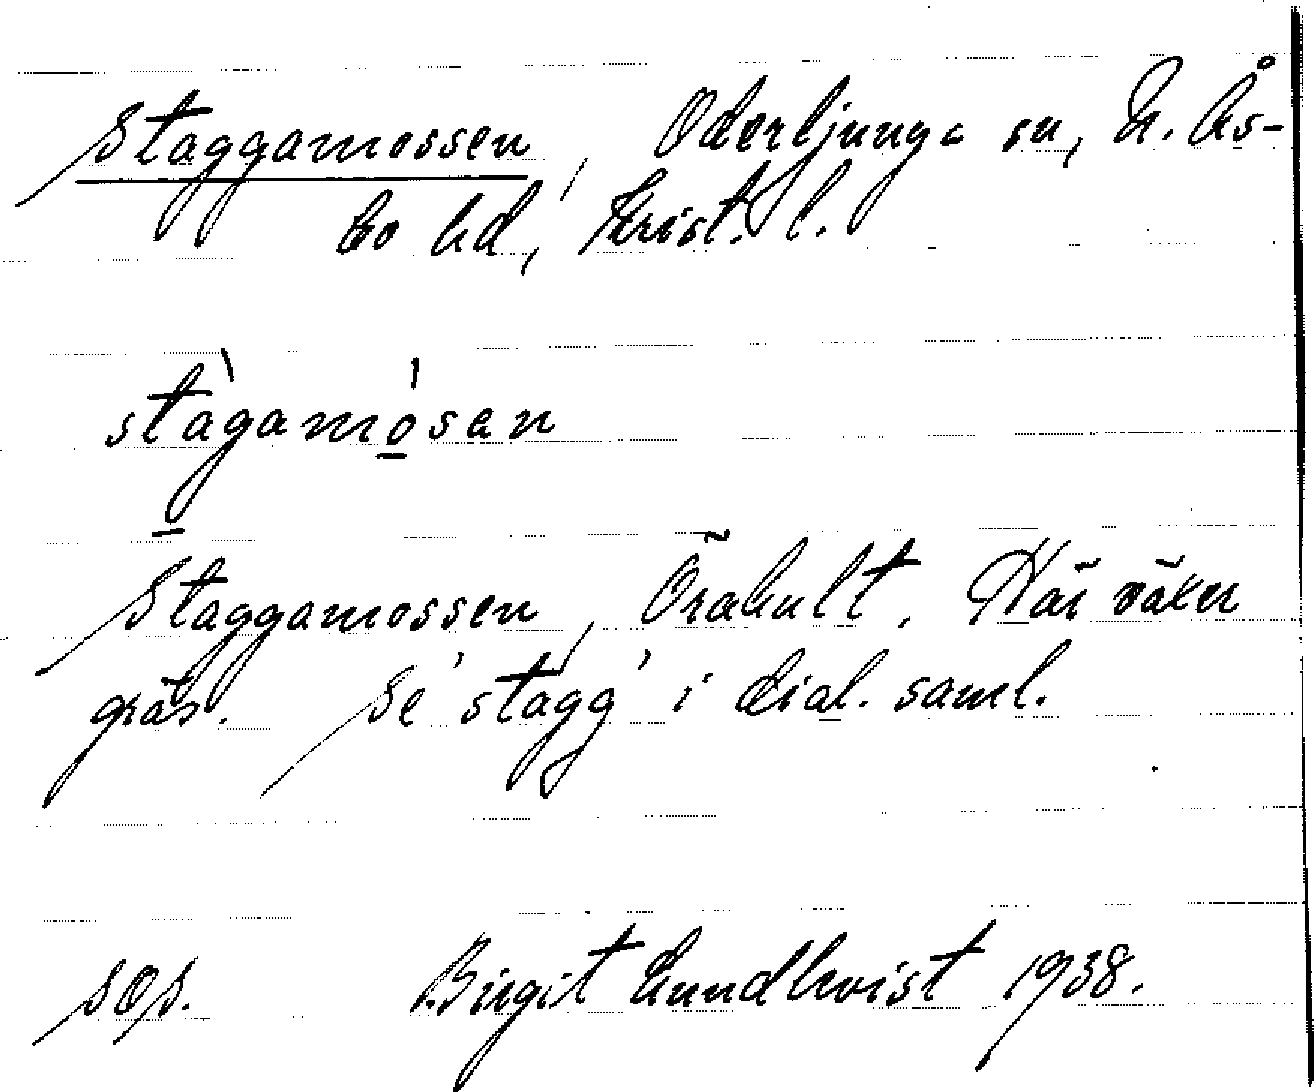 Staggamossen, Oderljunga sn, N. Ås-
bo hd, Krist. l.
stàgamósan
Staggamossen, Örahult. Här växer
gräs. Se 'stagg' i dial. saml.
sos. Birgit Lundkvist 1938.